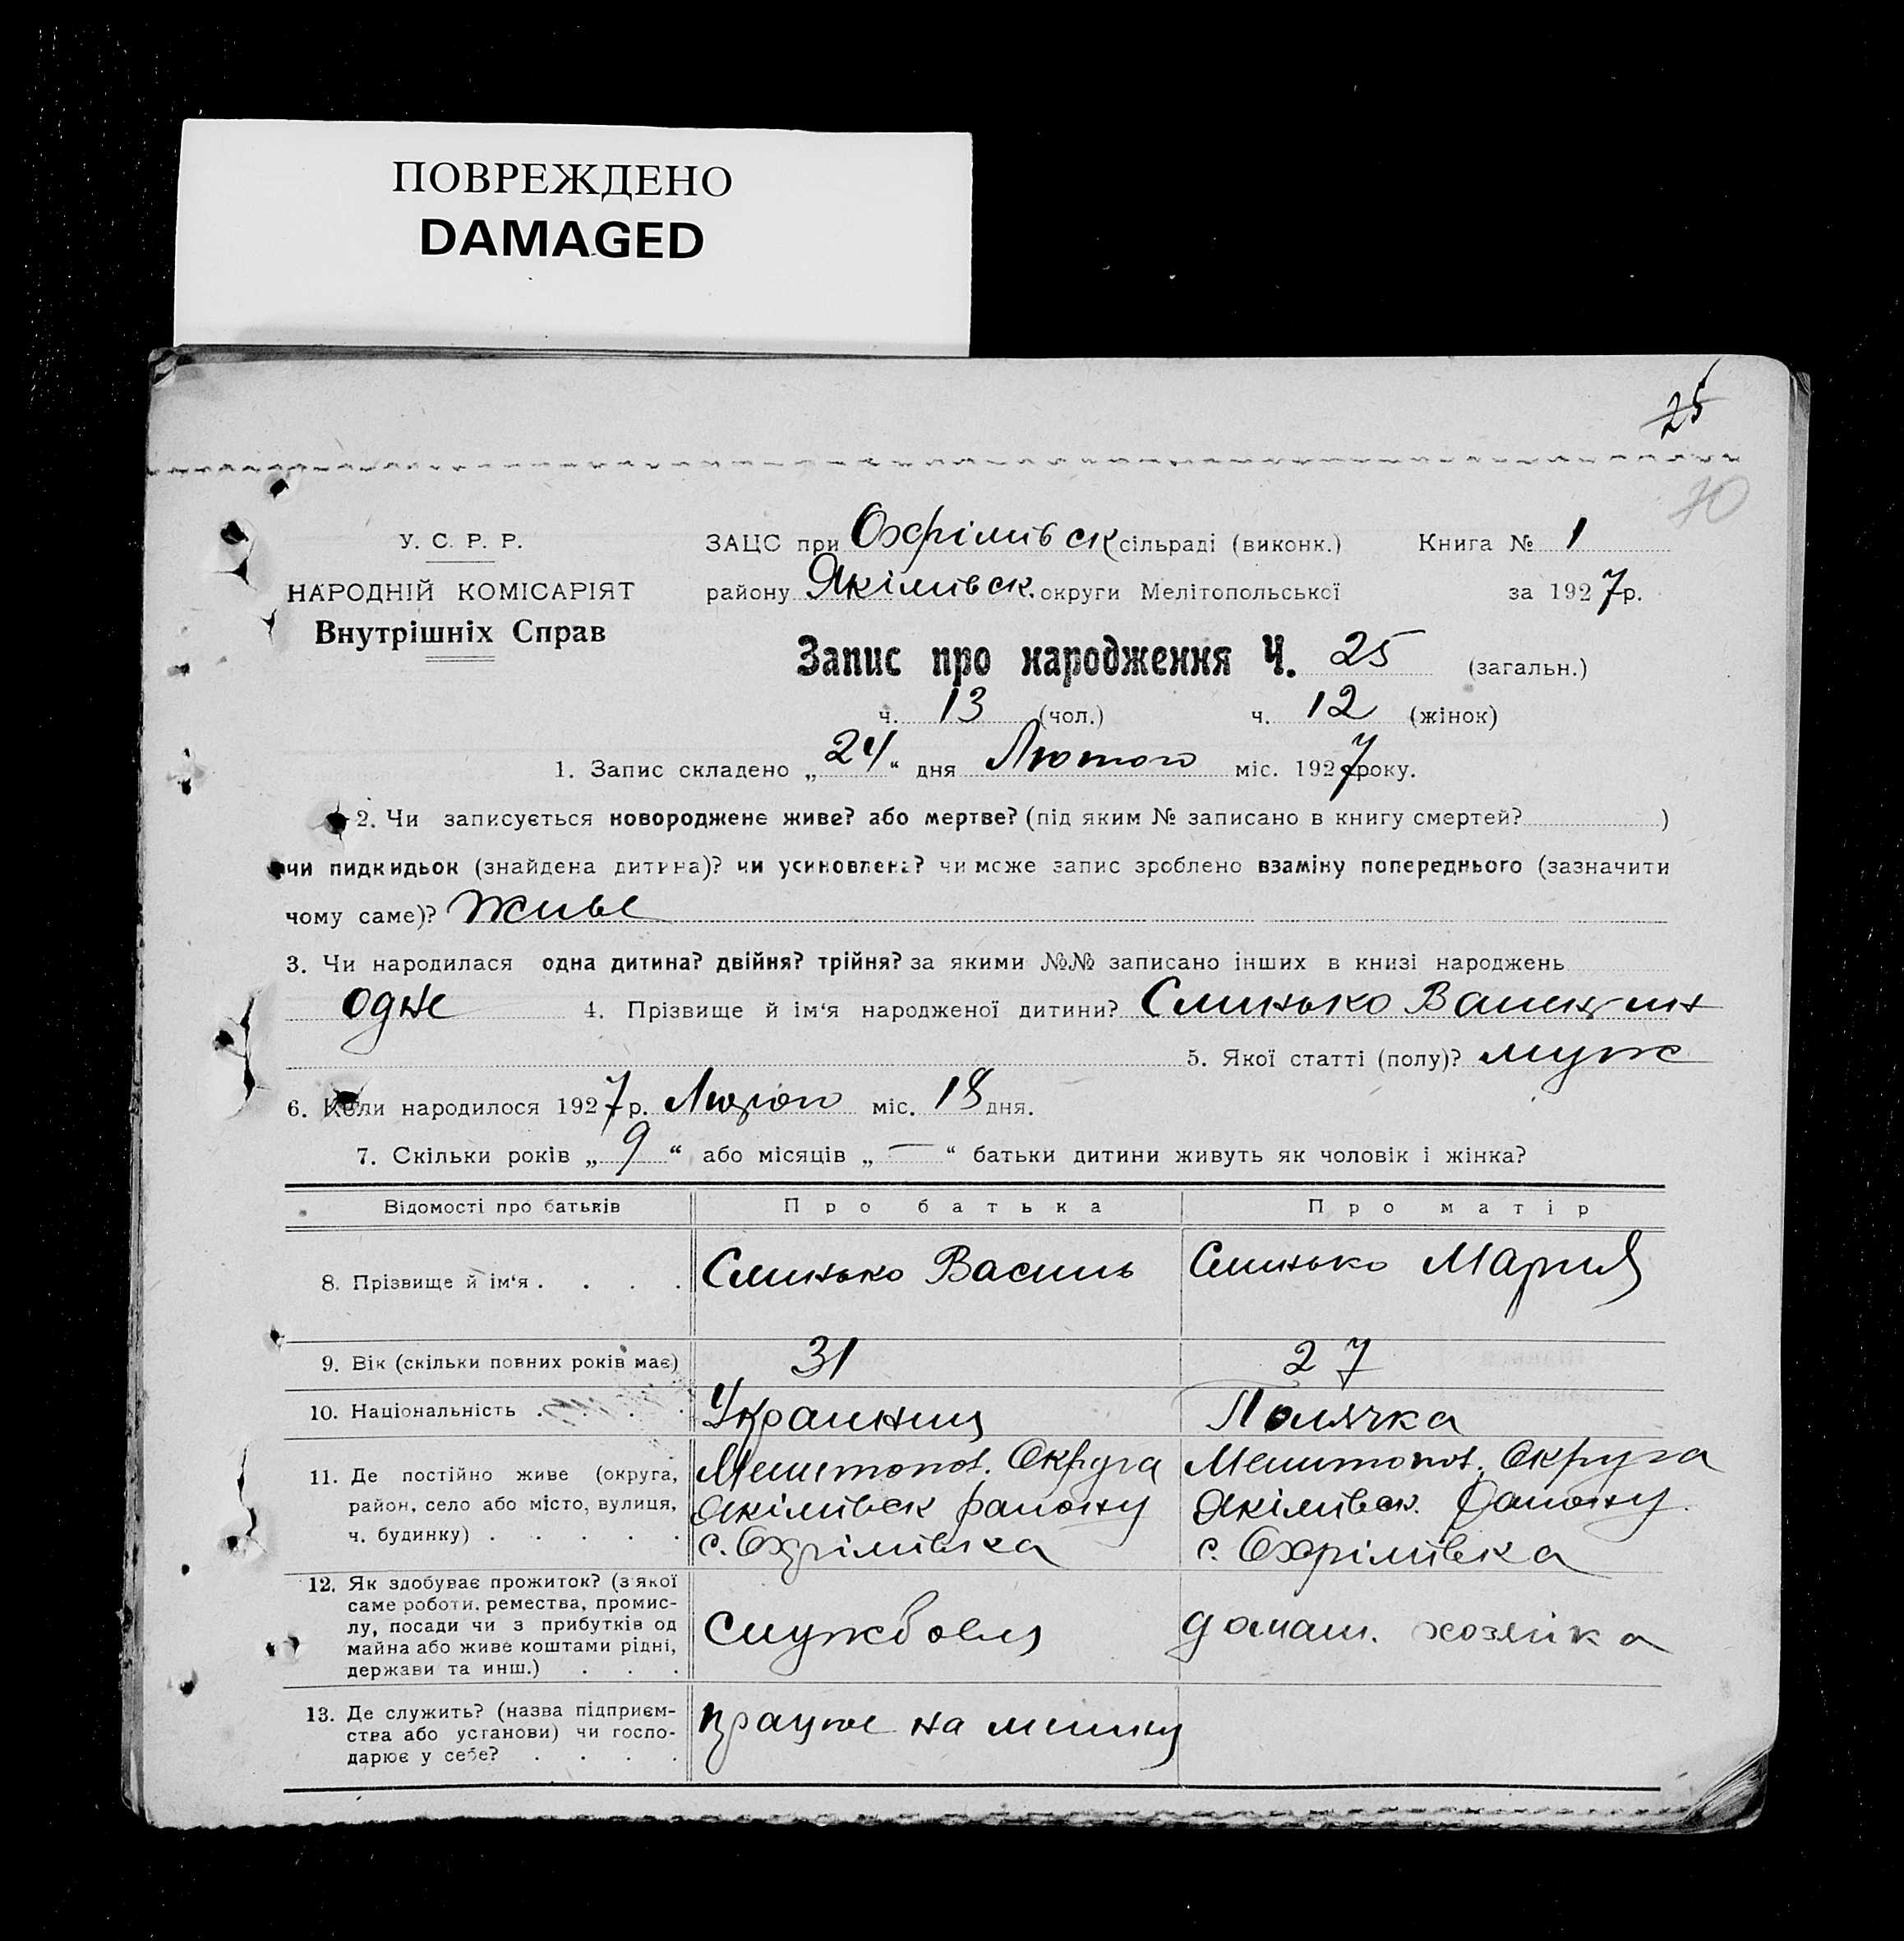 ПОВРЕЖДЕНО
DAMAGED
25
70
У. С. Р. Р.
НАРОДНІЙ КОМІСАРІЯТ
Внутрішніх Справ
ЗАЦС при Охрімівск сільраді (виконк.) Книга № 1
району Якімівск. округи Мелітопольської за 1927 р.
Запис про народження Ч. 25 (загальн.)
ч. 13 (чол.) ч. 12 (жінок)
1. Запис складено „24“ дня Лютого міс. 1927 року.
2. Чи записується новороджене живе? або мертве? (під яким № записано в книгу смертей? )
чи пидкидьок (знайдена дитина)? чи усиновлена? чи може запис зроблено взаміну попереднього (зазначити
чому саме)? Живе
3. Чи народилася одна дитина? двійня? трійня? за якими №№ записано інших в книзі народжень
одне 4. Прізвище й ім‘я народженої дитини? Слинько
5. Якої статті (полу)? муж
6. Коли народилося 1927 р. Лютого міс. 18 дня.
7. Скільки років „9“ або місяців „—“ батьки дитини живуть як чоловік і жінка?
Відомості про батьків Про батька Про матір
8. Прізвище й ім‘я . . . . Слинько Василь Слинько Мария
9. Вік (скільки повних років має) 31 27
10. Національність . . . . Украинец Полячка
11. Де постійно живе (округа,
район, село або місто, вулиця,
ч. будинку) . . . . .
Мелитопол. Округа
Якімівск району
с. Охрімівка
Мелитопол. Округа
Якімівск. району.
с. Охрімівка
12. Як здобуває прожиток? (з якої
саме роботи, ремества, промис-
лу, посади чи з прибутків од
майна або живе коштами рідні,
держави та инш.) . . .
Службовец
домаш. хозяйка
13. Де служить? (назва підприєм-
ства або установи) чи госпо-
дарює у себе? . . . .
працює на млину